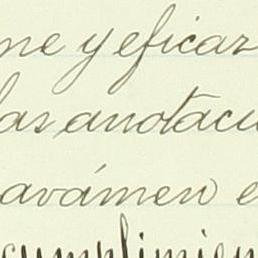 ne y eficaz
las anotacio
avámen e
cumplimien